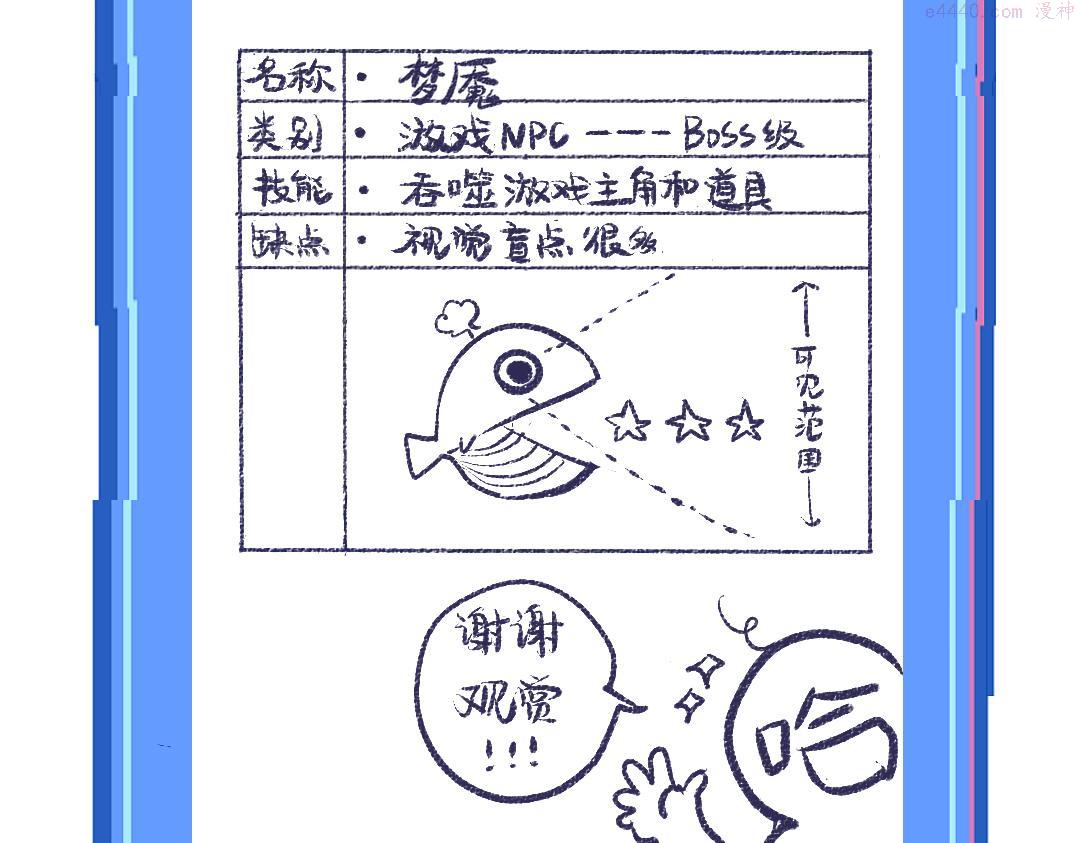 e4440.com 漫神
名称 • 梦魇
类别 • 游戏NPC ---- Boss级
技能 • 吞噬游戏主角和道具
缺点 • 视觉盲点很多
可见范围
谢谢
观赏
!!!
哈